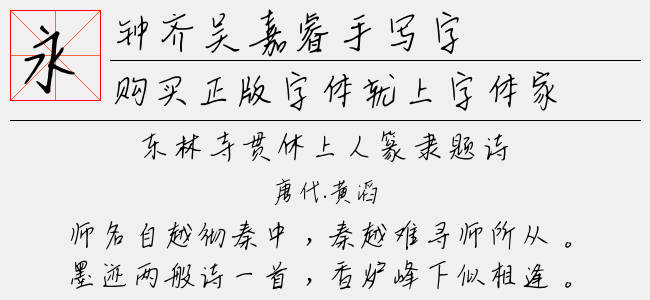 永
钟齐吴嘉睿手写字
购买正版字体就上字体家
东林寺贯休上人篆隶题诗
唐代.黄滔
师名自越彻秦中，秦越难寻师所从。
墨迹两般诗一首，香炉峰下似相逢。